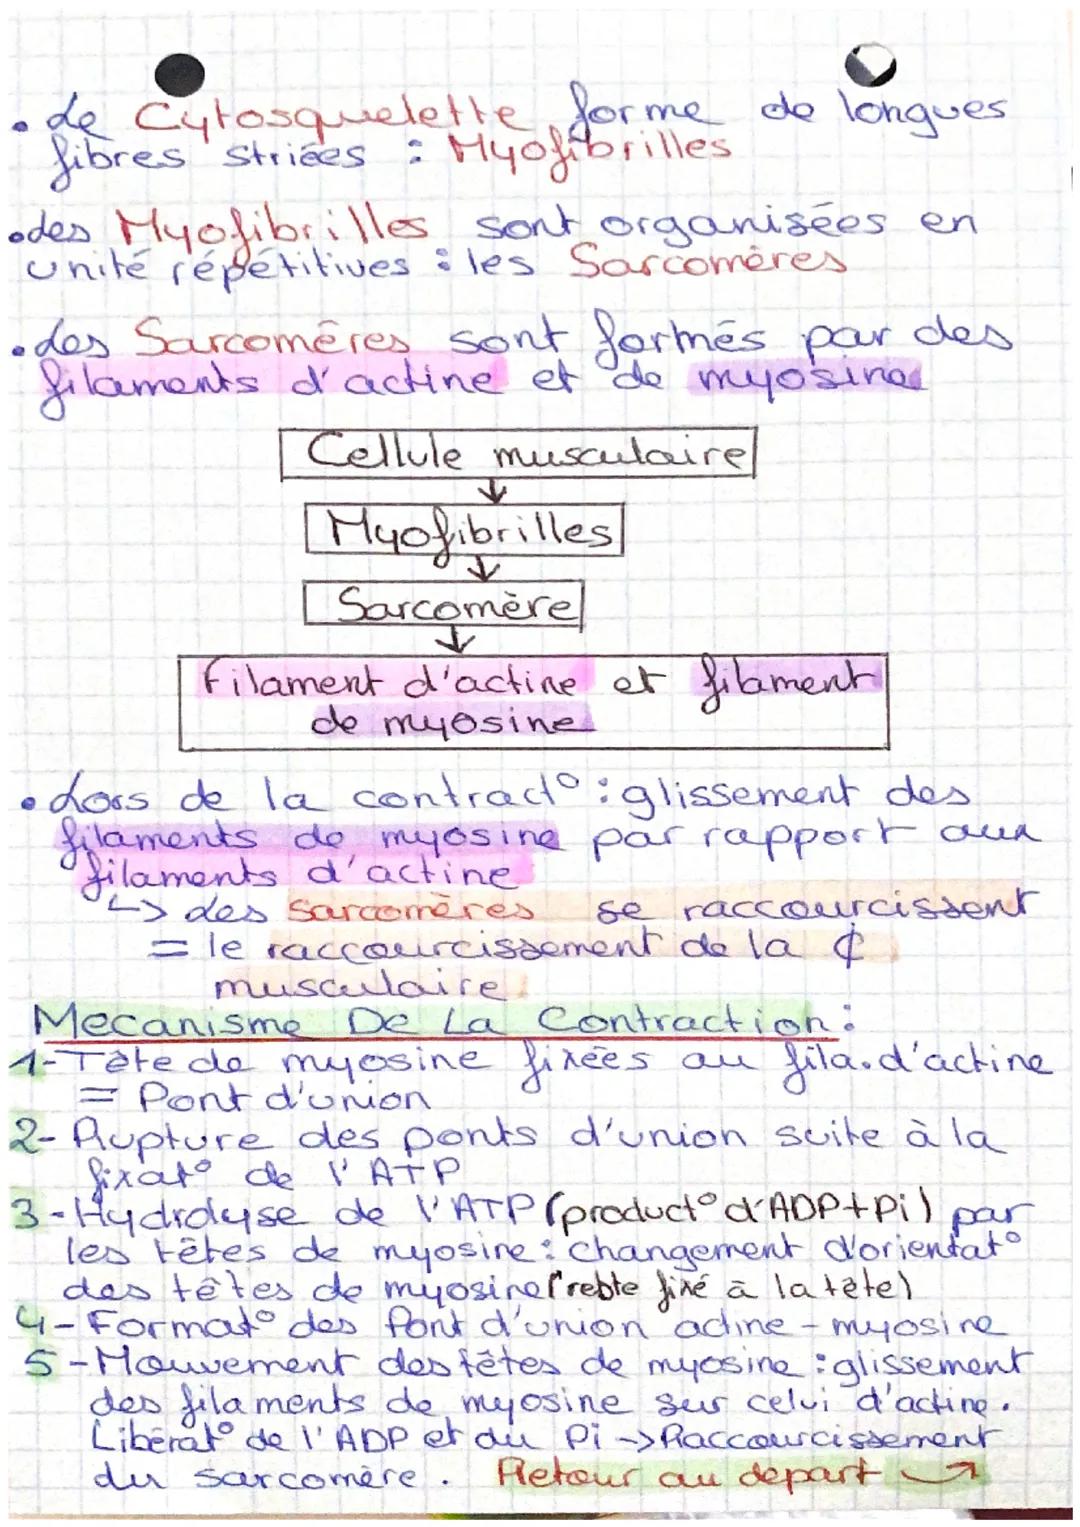 • Le Cytosquelette forme de longues
fibres striées : Myofibrilles
• Les Myofibrilles sont organisées en
unité répétitives : les Sarcomères
• Les Sarcomères sont formés par des
filaments d'actine et de myosine
Cellule musculaire
↓
Myofibrilles
↓
Sarcomère
↓
Filament d'actine et filament
de myosine
• Lors de la contract° : glissement des
filaments de myosine par rapport aux
filaments d'actine
↳ Les sarcomères se raccourcissent
= le raccourcissement de la ¢
musculaire
Mecanisme De La Contraction :
1-Tête de myosine fixées au fila. d'actine
= Pont d'union
2- Rupture des ponts d'union suite à la
fixat° de l'ATP
3-Hydrolyse de l'ATP (product° d'ADP+Pi) par
les têtes de myosine : changement d'orientat°
des têtes de myosine (reste fixé à la tête)
4-Format° des Pont d'union actine-myosine
5-Mouvement des têtes de myosine : glissement
des filaments de myosine sur celui d'actine.
Libérat° de l'ADP et du Pi → Raccourcissement
du sarcomère. Retour au départ